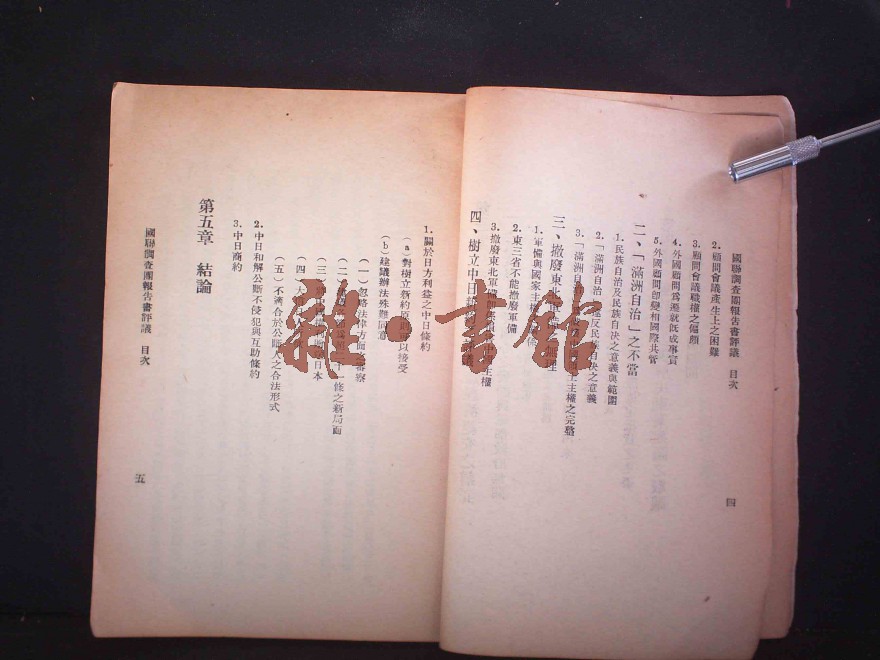 國聯調查團報告書評議　目次
四
2.顧問會議產生上之困難
3.顧問會議職權之偏頗
4.外國顧問為遷就既成事實
5.外國顧問卽變相國際共管
二、「滿洲自治」之不當
1.民族自治及民族自決之意義與範圍
2.「滿洲自治」違反民族自決之意義
3.「滿洲自治」土主權之完整
三、撤廢東北軍備
1.軍備與國家主權
2.東三省不能撤廢軍備
3.撤廢東北軍備主權
四、樹立中日新
1.關於日方利益之中日條約
（a）對樹立新約原則以接受
（b）建議辦法殊難同意
（一）忽略法律方面審察
（二）條之新局面
（三）日本
（四）
（五）不適合於公斷人之合法形式
2.中日和解公斷不侵犯與互助條約
3.中日商約
第五章　結論
國聯調查團報告書評議　目次
五
雜·書館